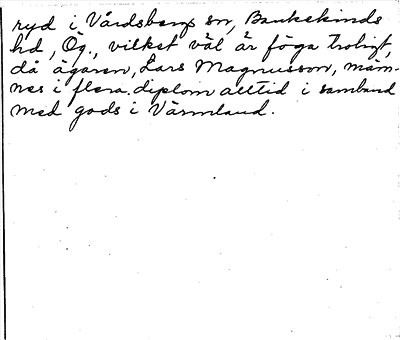 ryd i Vårdsbergs sn, Bankekinds
hd, Ög., vilket väl är föga troligt,
då ägaren, Lars Magnusson, näm-
nes i flera diplom alltid i samband
med gods i Värmland.